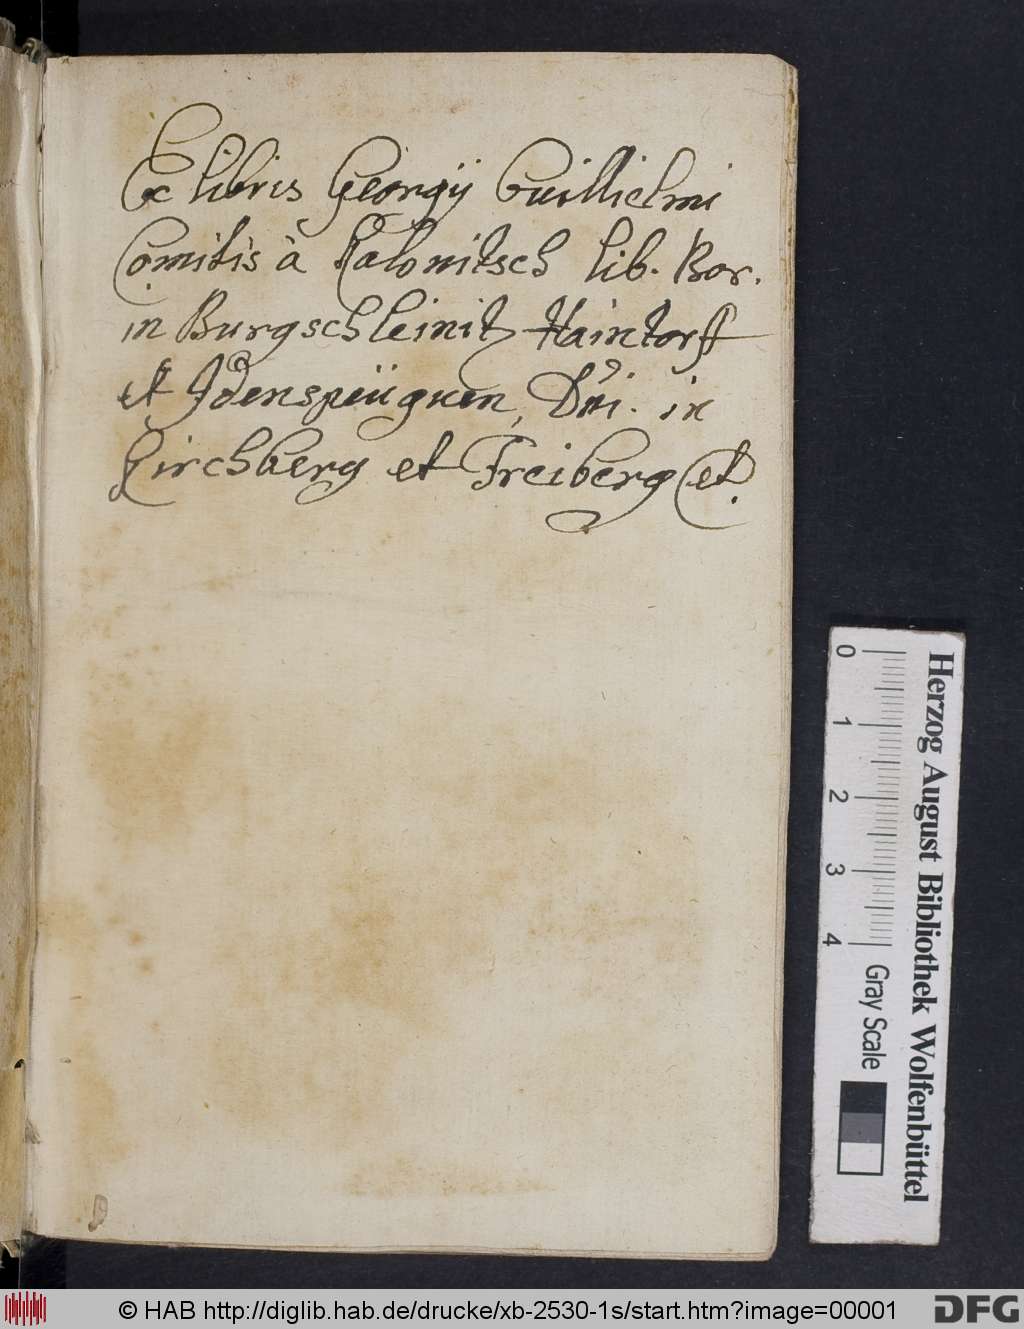 Ex libris Georgÿ Guillielmi
Comitis à Kalonitsch lib. Bar.
in Burgschleinitz Haintorff
et Idenspeügnen, Dni. in
Kirchberg et Freiberg et.
Herzog August Bibliothek Wolfenbüttel
0 1 2 3 4 Gray Scale
© HAB http://diglib.hab.de/drucke/xb-2530-1s/start.htm?image=00001
DFG